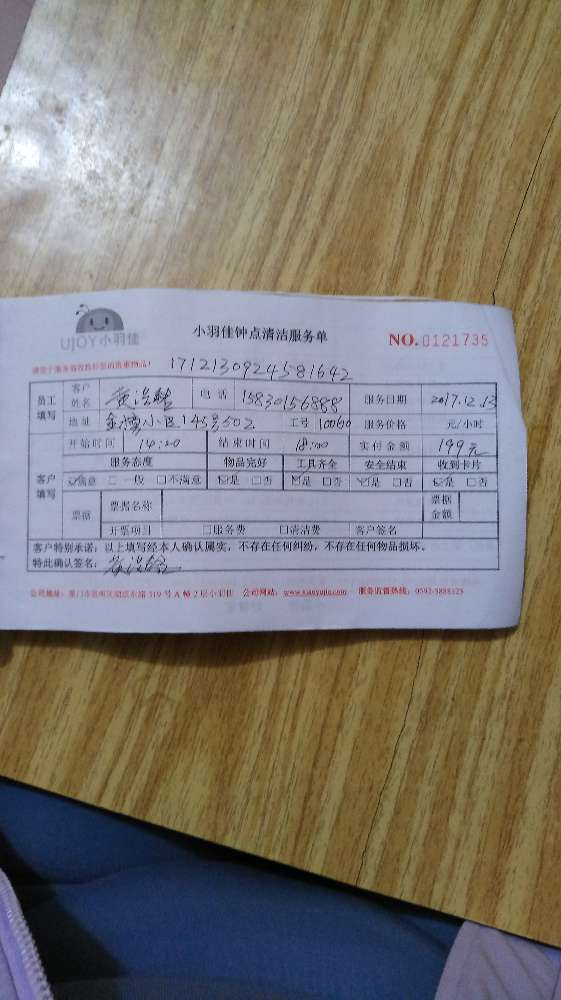 UJOY小羽佳
小羽佳钟点清洁服务单
NO.0121735
1712130924581642
员工填写 客户姓名 电话 15830156888 服务日期 2017.12.13
地址 小区145号502 工号 10060 服务价格 元/小时
开始时间 14:00 结束时间 18:00 实付金额 199元
客户填写 服务态度 物品完好 工具齐全 安全结束 收到卡片
☑满意 □一般 □不满意 ☑是 □否 ☑是 □否 ☑是 □否 ☑是 □否
票据 票据名称 票据金额
开票项目 □服务费 □清洁费 客户签名
客户特别承诺：以上填写经本人确认属实，不存在任何纠纷，不存在任何物品损坏。
特此确认签名：
公司地址：厦门市思明区 319号A幢2层小羽佳 公司网站：www.xiaoyujia.com 服务监督热线：0592-5888125